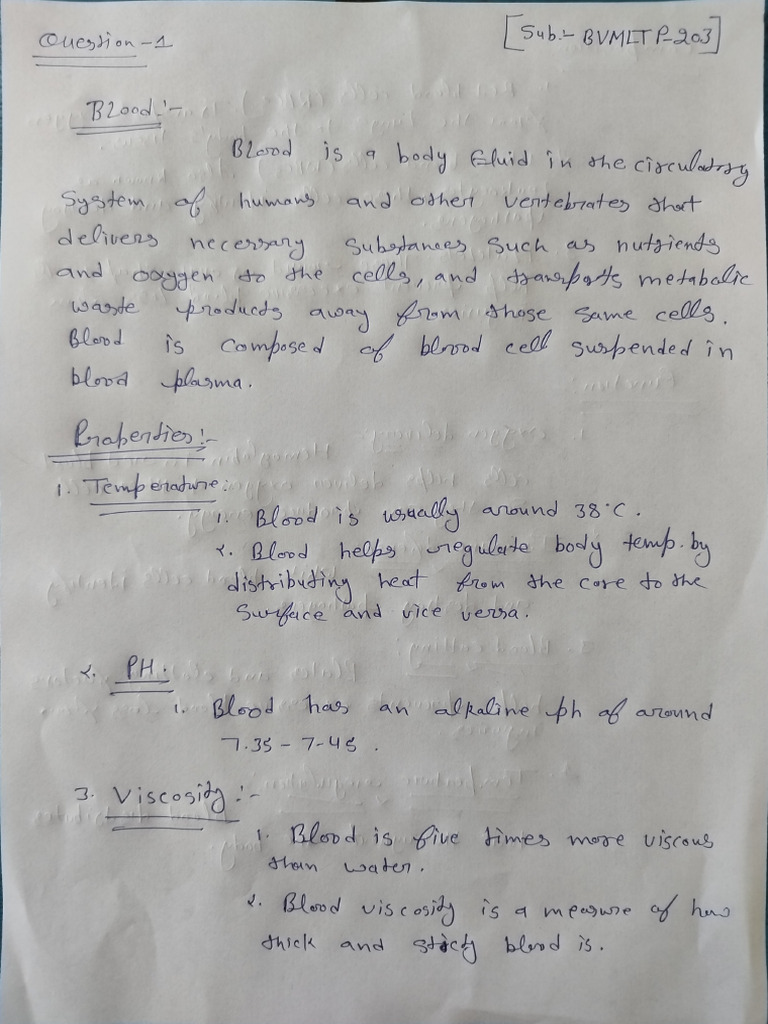 Question-1
[Sub:- BVMLTP-203]
Blood:-
Blood is a body fluid in the circulatory
System of humans and other vertebrates that
delivers necessary substances such as nutrients
and oxygen to the cells, and transports metabolic
waste products away from those same cells.
Blood is composed of blood cell suspended in
blood plasma.
Properties:-
1. Temperature:
1. Blood is usually around 38°C.
2. Blood helps regulate body temp. by
distributing heat from the core to the
surface and vice versa.
2. PH.
1. Blood has an alkaline ph of around
7.35 - 7-45.
3. Viscosity:-
1. Blood is five times more viscous
than water.
2. Blood viscosity is a measure of how
thick and sticky blood is.